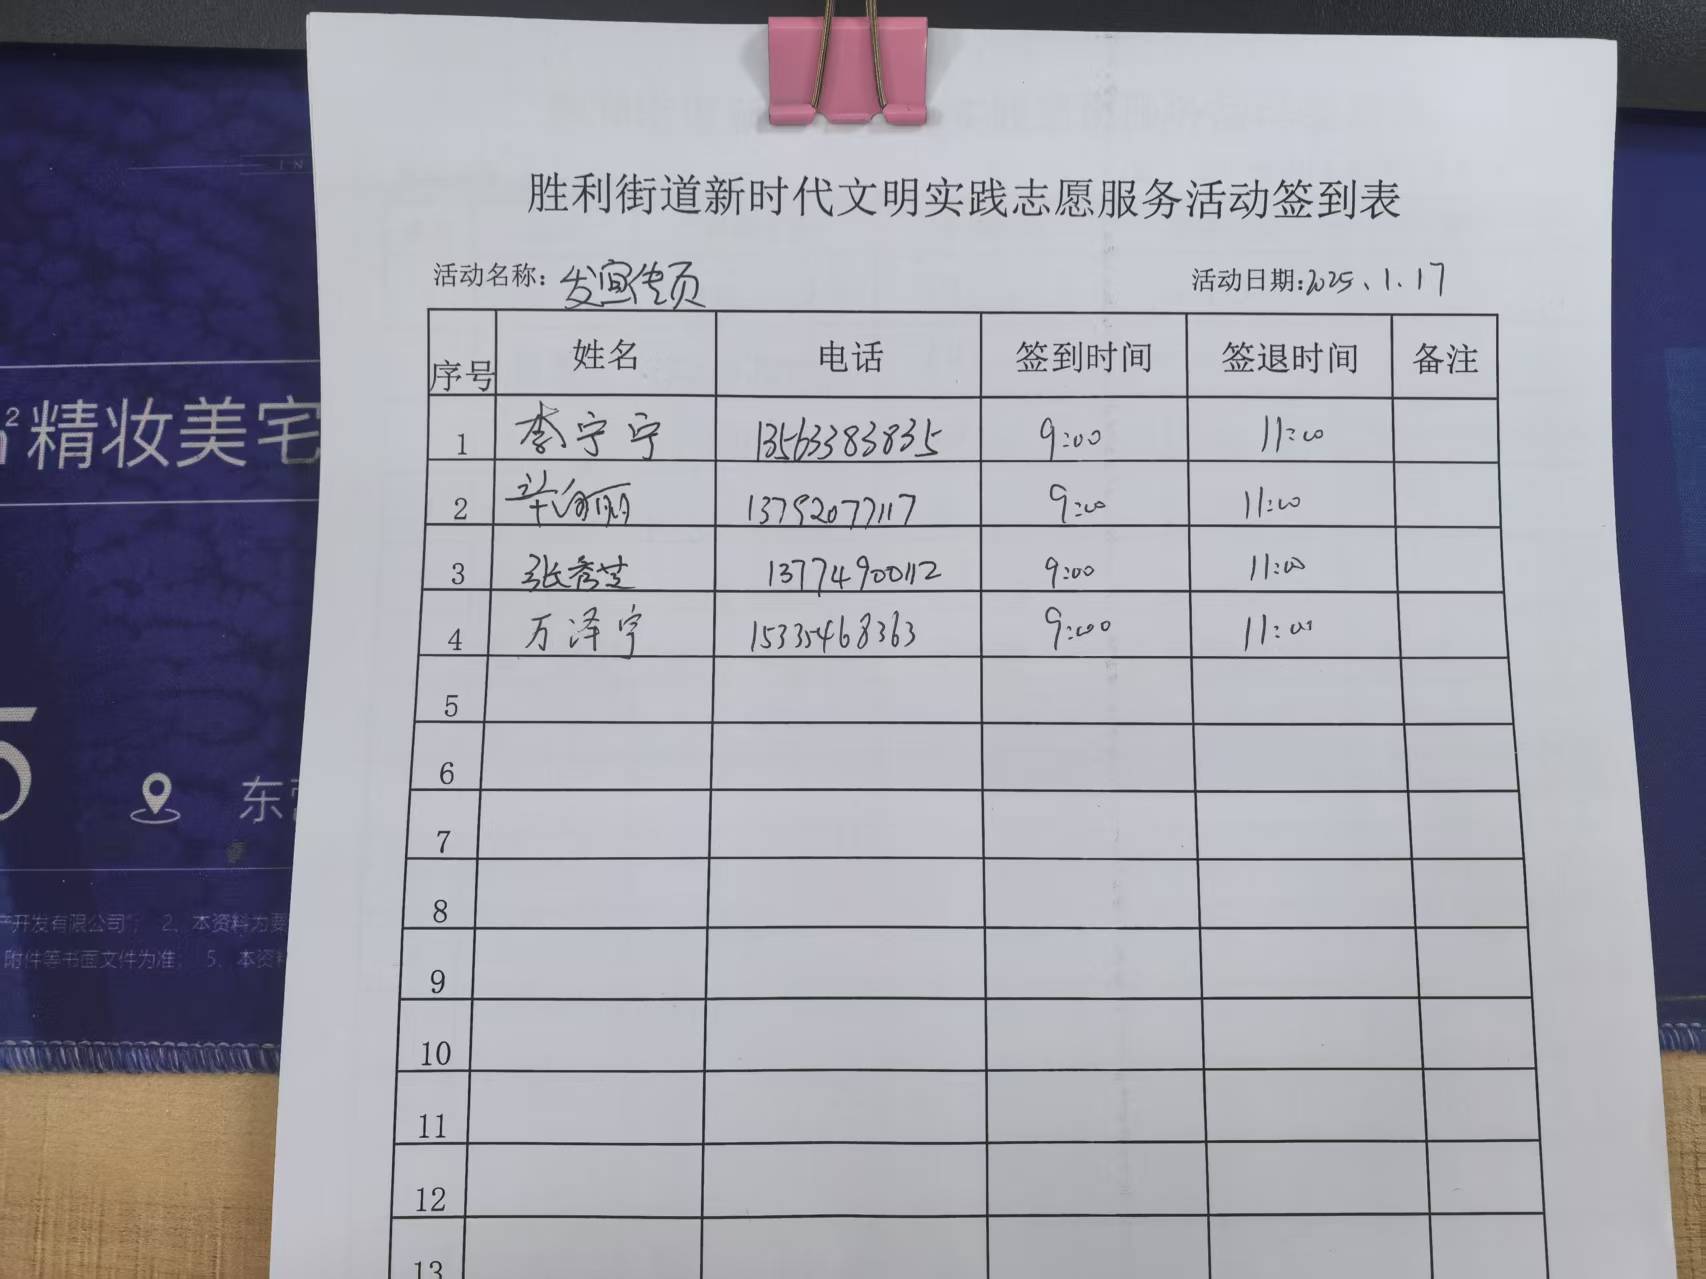 胜利街道新时代文明实践志愿服务活动签到表
活动名称：发宣传页 活动日期：2025、1.17
序号 姓名 电话 签到时间 签退时间 备注
1 李宁宁 13563383835 9:00 11:00
2 丽 13792077117 9:00 11:00
3 张秀芝 13774900112 9:00 11:00
4 万泽宇 15335468363 9:00 11:00
5
6
7
8
9
10
11
12
13
IN
㎡精妆美宅
5
东营
产开发有限公司； 2、本资料为要
附件等书面文件为准； 5、本资料